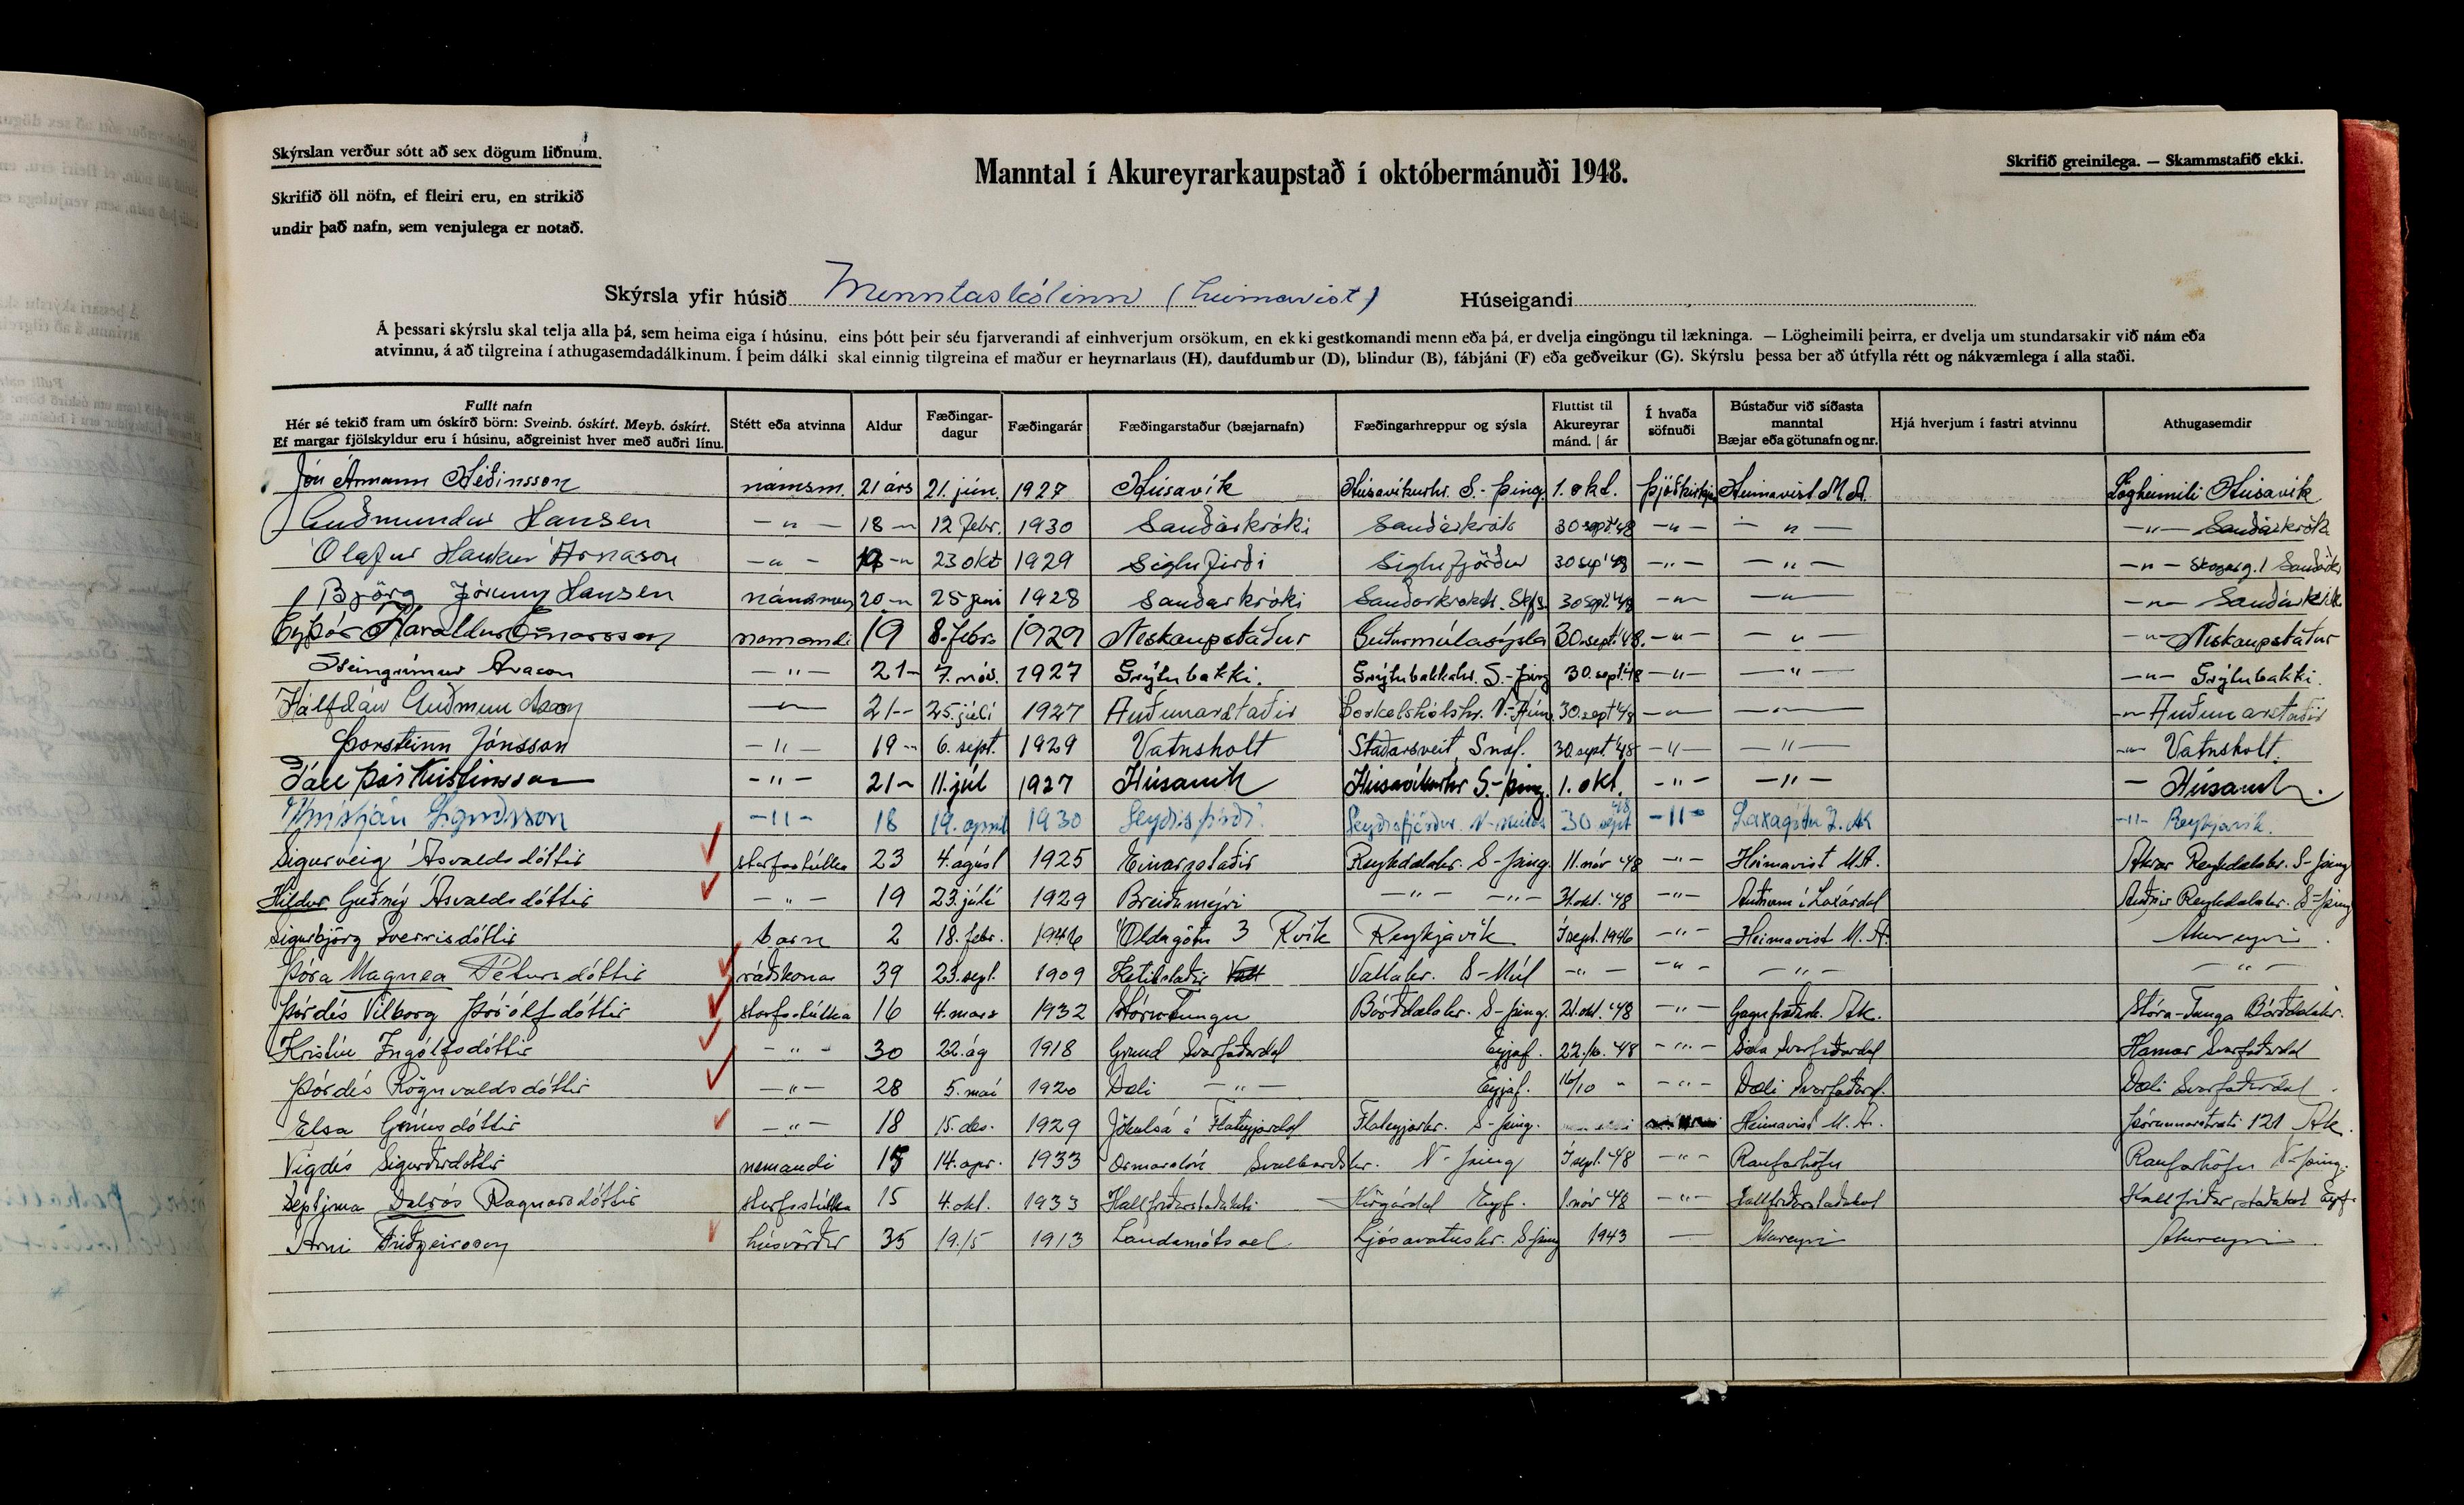 Skýrslan verður sótt að sex dögum liðnum.
Skrifið öll nöfn, ef fleiri eru, en strikið
undir það nafn, sem venjulega er notað.
Manntal í Akureyrarkaupstað í októbermánuði 1948.
Skrifið greinilega. — Skammstafið ekki.
Skýrsla yfir húsið Menntaskólinn (heimavist) Húseigandi
Á þessari skýrslu skal telja alla þá, sem heima eiga í húsinu, eins þótt þeir séu fjarverandi af einhverjum orsökum, en ekki gestkomandi menn eða þá, er dvelja eingöngu til lækninga. — Lögheimili þeirra, er dvelja um stundarsakir við nám eða
atvinnu, á að tilgreina í athugasemdadálkinum. Í þeim dálki skal einnig tilgreina ef maður er heyrnarlaus (H), daufdumbur (D), blindur (B), fábjáni (F) eða geðveikur (G). Skýrslu þessa ber að útfylla rétt og nákvæmlega í alla staði.
Fullt nafn Hér sé tekið fram um óskírð börn: Sveinb. óskírt. Meyb. óskírt. Ef margar fjölskyldur eru í húsinu, aðgreinist hver með auðri línu. Stétt eða atvinna Aldur Fæðingar-dagur Fæðingarár Fæðingarstaður (bæjarnafn) Fæðingarhreppur og sýsla Fluttist til Akureyrar mánd. | ár Í hvaða söfnuði Bústaður við síðasta manntal Bæjar eða götunafn og nr. Hjá hverjum í fastri atvinnu Athugasemdir
Jón Ármann Héðinsson námsm. 21 árs 21. jún. 1927 Húsavík Húsavíkurhr. S.-Þing. 1. okt. Þjóðkirkja Heimavist M.A. Lögheimili Húsavík
Guðmundur Hansen — " — 18 — " 12 febr. 1930 Sauðárkróki Sauðárkrók 30 sept '48 — " — — " — — " — Sauðárkrók
Ólafur Haukur Árnason — " — — " 23 okt 1929 Siglufirði Siglufjörður 30 sep '48 — " — — " — — " —
Björg Jórunn Hansen námsmey 20 — " 25 júní 1928 Sauðárkróki 30 sept. '48 — " — — " — — " — Sauðárkrók
Eyþór Haraldur Einarsson nemandi 19 8. febr. 1929 Neskaupstaður Suðurmúlasýsla 30. sept '48. — " — — " — — " — Neskaupstaður
Steingrímur Arason — " — 21 — 7. nóv. 1927 Grýtubakki. Grýtubakkahr. S.-Þing 30. sept. '48 — " — — " — — " — Grýtubakki.
Hálfdán Guðmundsson — " — 21 — 25. júlí 1927 Auðunarstaðir Þorkelshólshr. V-Hún. 30. sept '48 — " — — " — — " — Auðunarstaðir
Þorsteinn Jónsson — " — 19 — 6. sept. 1929 Vatnsholt Staðarsveit, Snæf. 30. sept '48 — " — — " — — " — Vatnsholt.
Páll Þór Kristinsson — " — 21 — 11. júl 1927 Húsavík Húsavíkurhr S.-Þing. 1. okt. — " — — " — — Húsavík.
Kristján Sigurðsson — " — 18 19. apríl 1930 Seyðisfirði Seyðisfjörður. N-Múlas 30 sept '48 — " — Laxagötu 7. Ak — " — Reykjavík.
Sigurveig Ásvaldsdóttir starfsstúlka 23 4. ágúst 1925 Einarsstaðir Reykdælahr. S-Þing. 11. nóv '48 — " — Heimavist M.A. Akrar Reykdælahr. S-Þing
Hildur Guðný Ásvaldsdóttir — " — 19 23. júlí 1929 Breiðumýri — " — — " — 31. okt. '48 — " — Auðnum í Laxárdal Auðnir Reykdælahr. S-Þing
Sigurbjörg Sverrisdóttir barn 2 18. febr. 1946 Öldugötu 3 Rvík Reykjavík Í sept. 1946 — " — Heimavist M.A. Akureyri.
Þóra Magnea Pétursdóttir ráðskona 39 23. sept. 1909 Ketilsstaðir Vallahr. S-Múl — " — — " — — " — — " —
Þórdís Vilborg Þórólfsdóttir starfsstúlka 16 4. mars 1932 Stóru-Tungu Bárðdælahr. S-Þing. 21. okt. '48 — " — Gagnfræðask. Ak. Stóra-Tunga Bárðdælahr.
Kristín Ingólfsdóttir — " — 30 22. ág 1918 Grund Svarfaðardal Eyjaf. 22./10. '48 — " — Svarfaðardal Hamar Svarfaðardal
Þórdís Rögnvaldsdóttir — " — 28 5. maí 1920 Dæli — " — Eyjaf. 16/10 " — " — Dæli Svarfaðard. Dæli Svarfaðardal.
Elsa Grímsdóttir — " — 18 15. des. 1929 Jökulsá á Flateyjardal Flateyjarhr. S-Þing. Heimavist M.A. Þórunnarstræti 121 Ak.
Vigdís Sigurðardóttir nemandi 15 14. apr. 1933 Ormarslón Svalbarðshr. N-Þing Í sept. '48 — " — Raufarhöfn Raufarhöfn N-Þing.
Septíma Dalrós Ragnarsdóttir starfsstúlka 15 4. okt. 1933 Hallfríðarstaðakoti Hörgárdal Eyjf. 1. nóv '48 — " — Hallfríðarstaðakot Hallfríðarstaðakot Eyjf.
Árni Friðgeirsson húsvörður 35 19./5 1913 Landamótssel Ljósavatnshr. S-Þing 1943 — Akureyri Akureyri